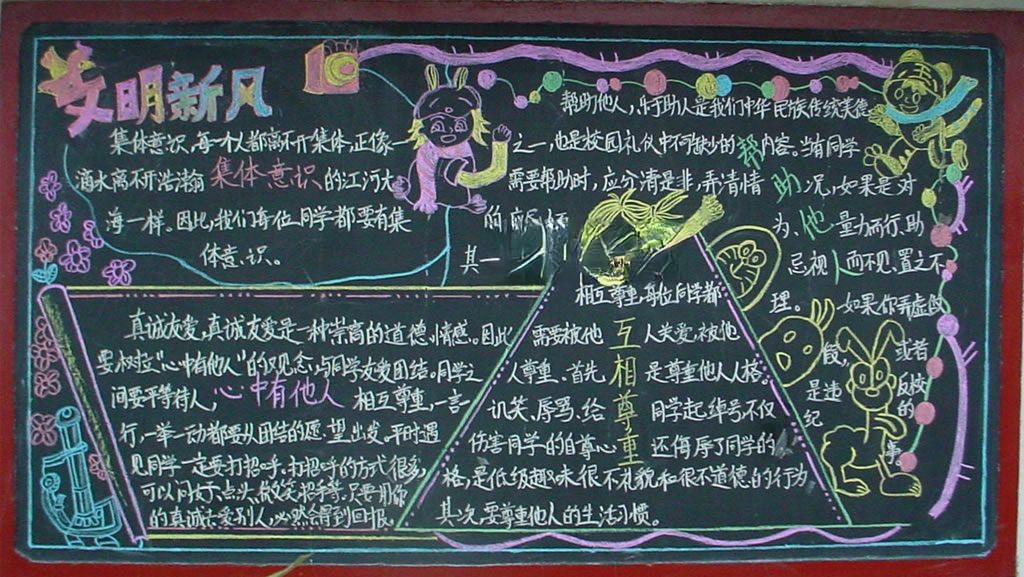 文明新风
集体意识,每一个人都离不开集体,正像一
滴水离不开浩瀚 集体意识 的江河大
海一样。因此,我们每位同学都要有集
体意识。
帮助他人,乐于助人是我们中华民族传统美德
之一,也是校园礼仪中不可缺少的 内容。当有同学
需要帮助时,应分清是非,弄清情 助 况,如果是对
的
其一
为、他 量力而行、助
忌视 人 而不见、置之不
理。 如果你弄虚作
假, 或者
是违 反校
纪 的
事。
真诚友爱,真诚友爱是一种崇高的道德情感。因此
要树立“心中有他人”的观念,与同学友爱团结。同学之
间要平等待人, 心中有他人 相互尊重,一言一
行,一举一动都要从团结的愿望出发。平时遇
见同学一定要打招呼,打招呼的方式很多,
可以问好、点头、微笑、招手等,只要用你
的真诚去爱别人,必然会得到回报。
相互尊重,每位同学都
需要被他 人关爱,被他
互相尊重
人尊重、首先 是尊重他人人格。
讥笑、辱骂、给 同学起绰号不仅
伤害同学的自尊心 还侮辱了同学的人
格,是低级趣味很不礼貌和很不道德的行为
其次,要尊重他人的生活习惯。